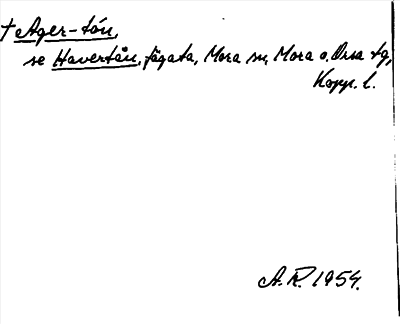 † Åger-tån,
se Havertån, fägata, Mora sn, Mora o. Orsa tg,
Kopp. l.
A.R. 1954.